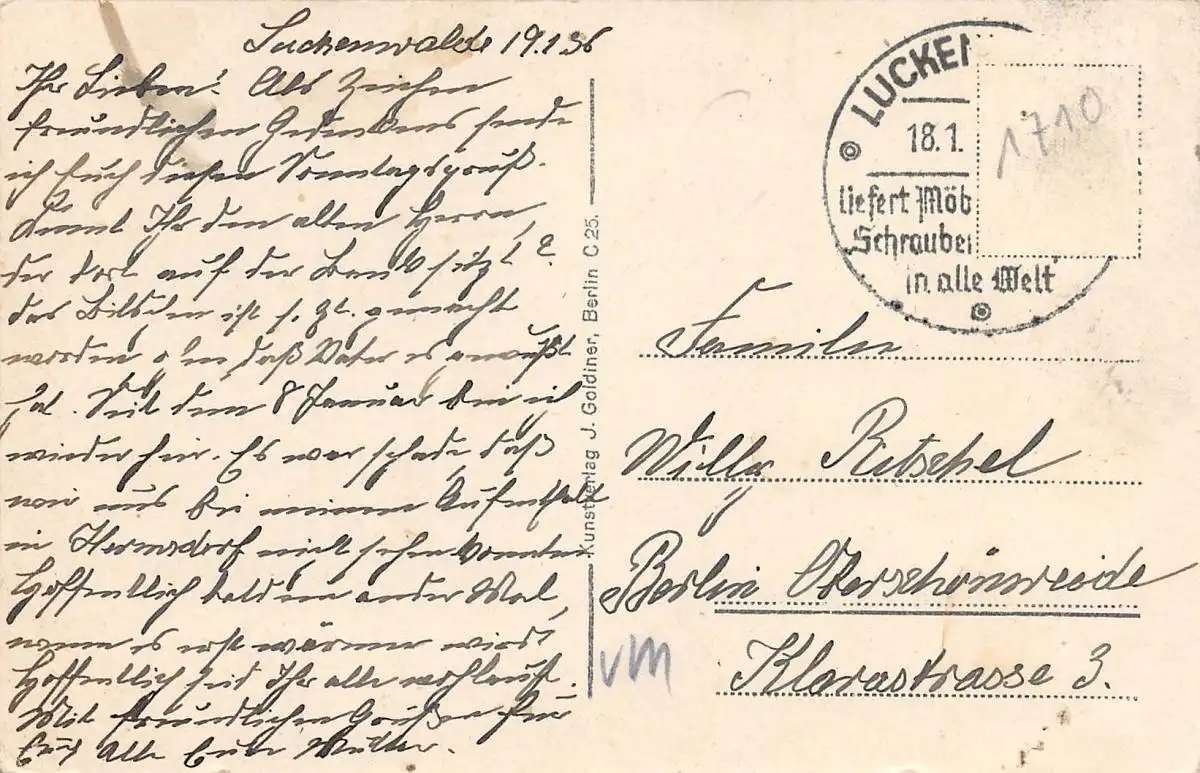 Luckenwalde 19.1.36
Ihr Lieben! Als Zeichen
freundlichen Gedenkens sende
ich Euch diesen Sonntagsgruß.
Kennt Ihr den alten Herrn,
der dort auf der Bank sitzt?
das Bildchen ist s. Zt. gemacht
worden ohne daß Vater es gewußt
hat. Seit dem 8 Januar bin ich
wieder hier. Es war schade, daß
wir uns bei meinem Aufenthalt
in Hermsdorf nicht sehen konnten
Hoffentlich bald ein ander Mal,
wenn es erst wärmer wird.
Hoffentlich seid Ihr alle wohlauf.
Mit freundlichen Grüßen für
Euch Alle Eure Mutter.
Kunstverlag J. Goldiner, Berlin C 25.
LUCKEN
18.1.
liefert Möb
Schrauben
in alle Welt
1710
Familie
Willy Ritschel
Berlin Oberschönweide
Klarastrasse 3.
VM